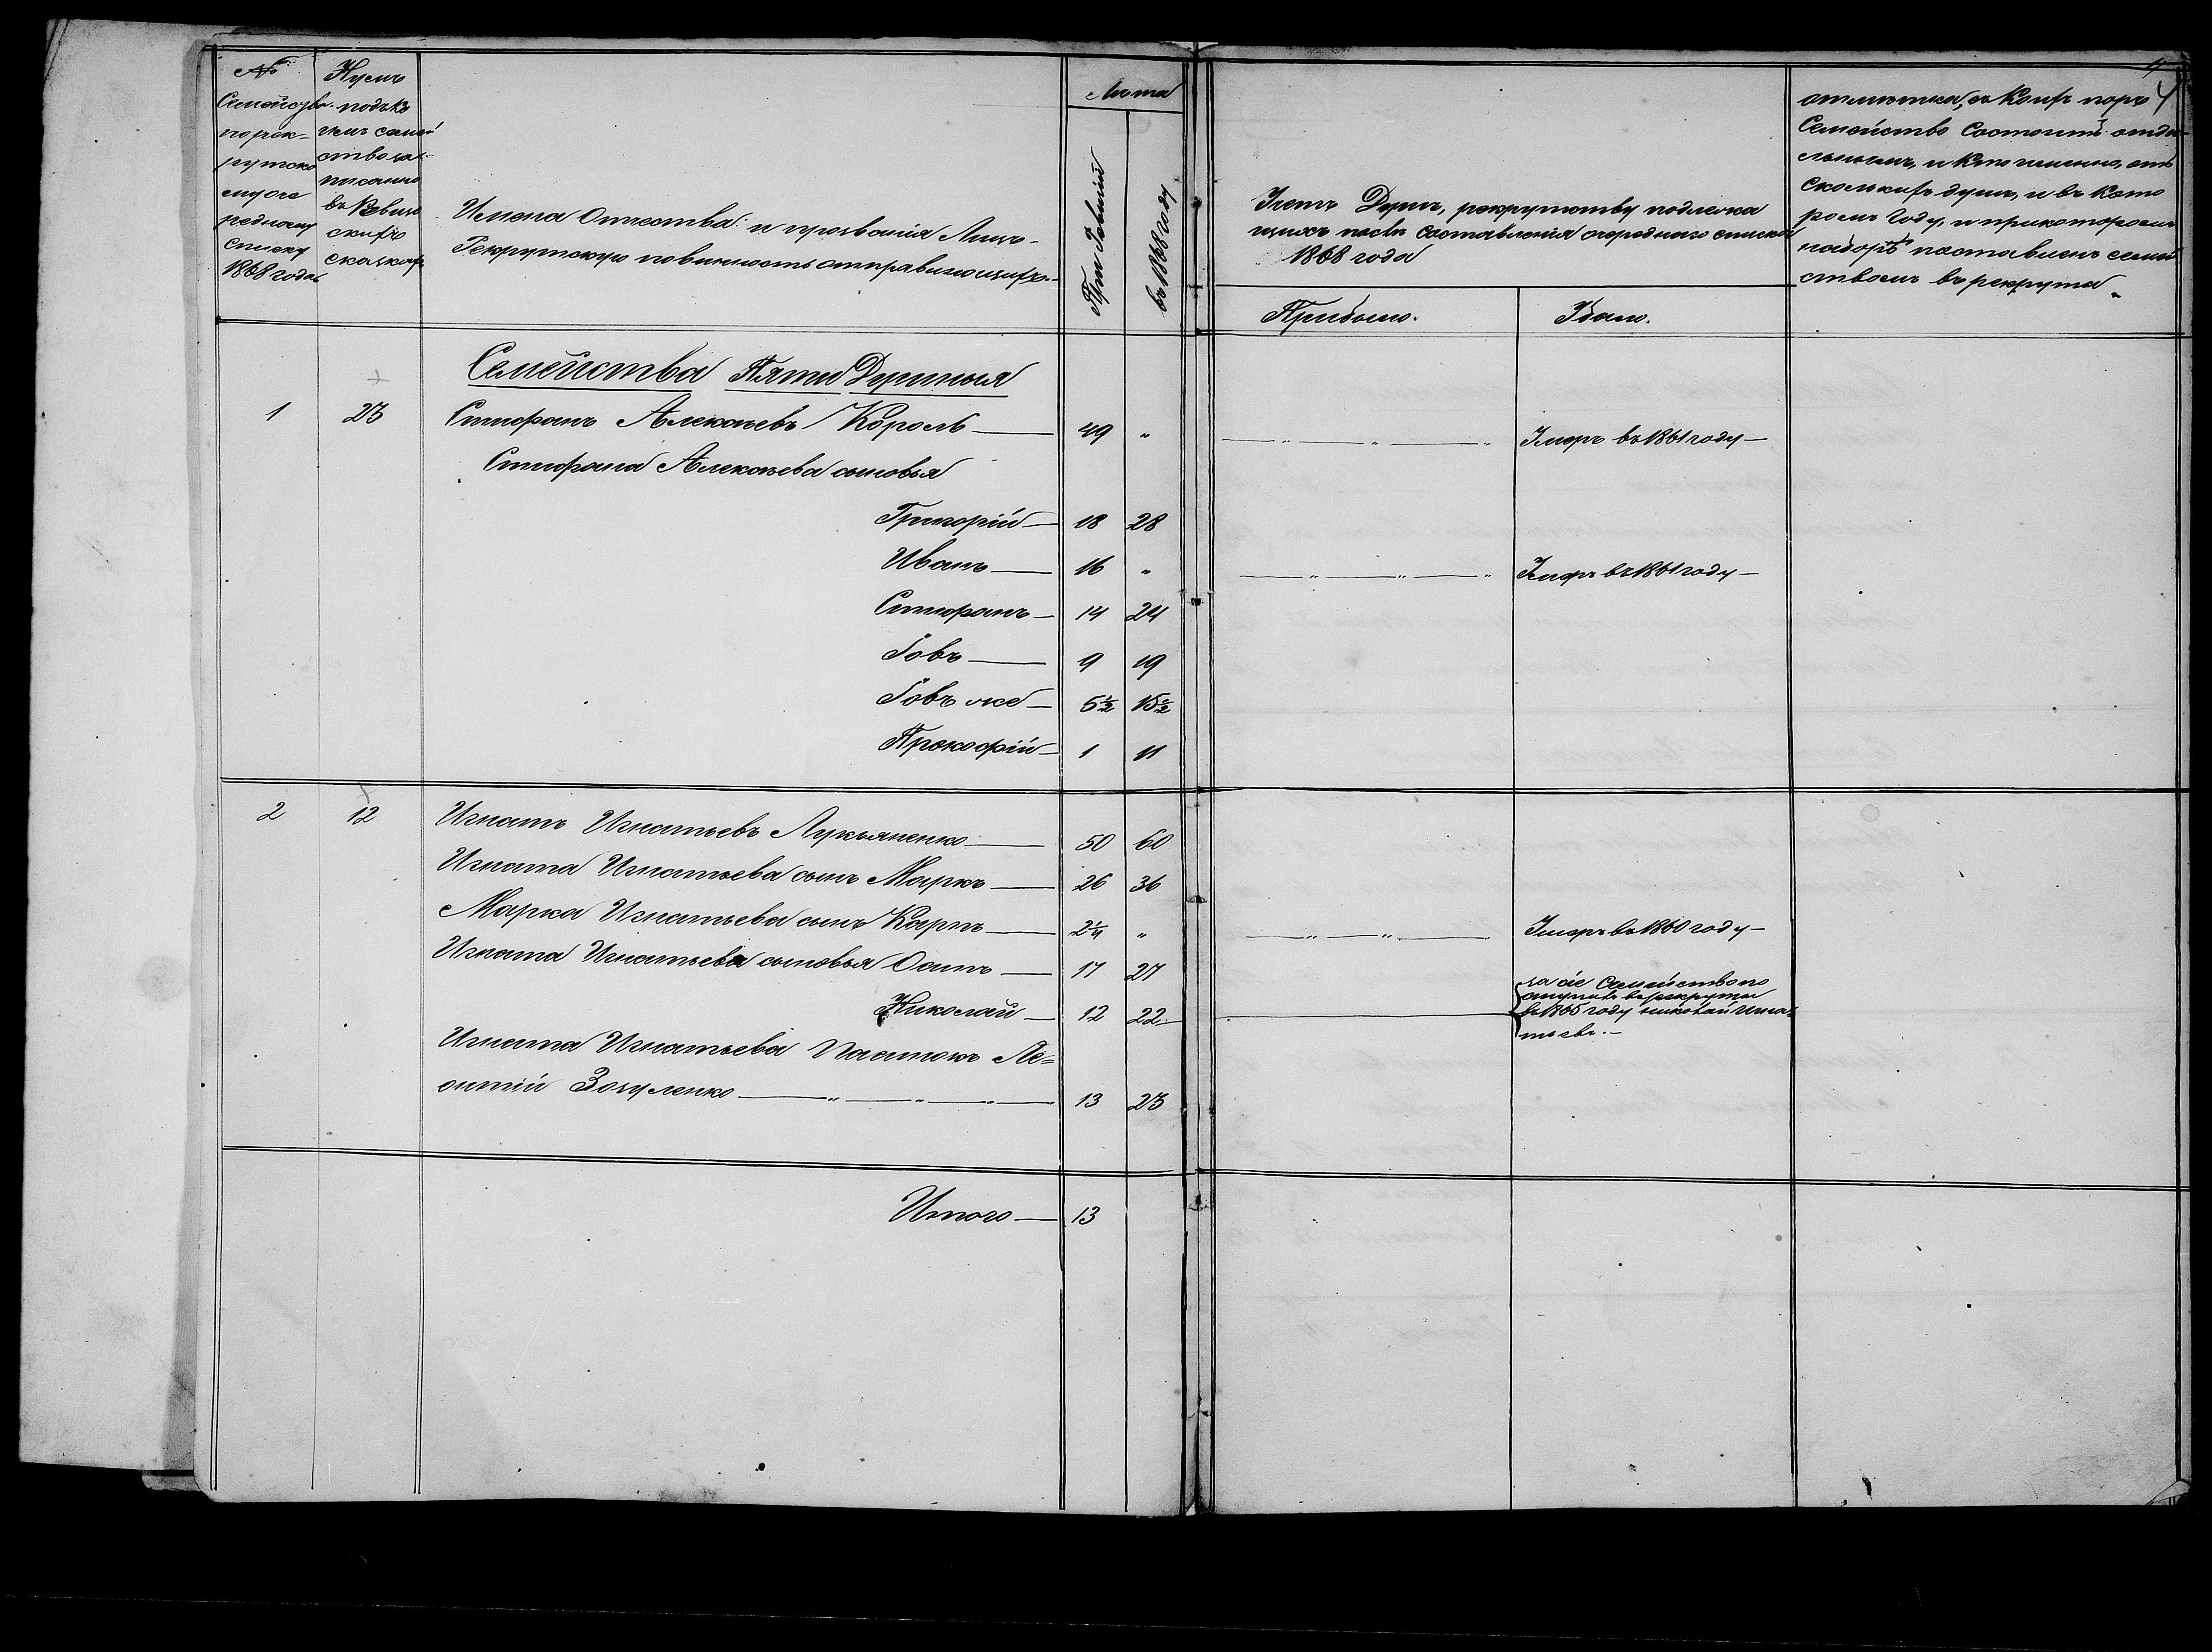 №
Семейства
по рек-
рутско
му оче
редному
списку
1868 года
Нумъ
подъ ко
имъ семей
ство за
писанно
въ Ревизс
скихъ
сказкахъ
Имена Отчества и прозванія Лицъ
Рекрутскую повинность отправляющихъ
Лѣта
При Ревизіи
въ 1868 году
Учетъ Душъ, рекрутству подлежа
щихъ послѣ составленія очереднаго списка
1868 года
Прибыло.
Убыло.
4
отмѣтка, съ коихъ поръ
Семейство состоитъ отдѣ
льнымъ, и кто именно, отъ
сколькихъ душъ, и въ кото
ромъ году, и при которомъ
наборѣ поставленъ семей
ствомъ въ рекрута
Семейства Пяти Душныя
1 23 Стефанъ Алексѣевъ Король — 49 „ — „ — „ — „ Умеръ въ 1861 году —
Стефана Алексѣева сыновья
Григорій — 18 28
Иванъ — 16 „ — „ — „ — „ Умеръ въ 1861 году —
Стефанъ — 14 24
Іовъ — 9 19
Іовъ же — 5½ 15½
Прокофій — 1 11
2 12 Игнатъ Игнатьевъ Лукьяненко — 50 60
Игната Игнатьева сынъ Маркъ — 26 36
Марка Игнатьева сынъ Карпъ — 2¼ „ — „ — „ — Умеръ въ 1860 году —
Игната Игнатьева сыновья Осипъ — 17 27
Николай — 12 22 —
за сіе Семейство по
ступилъ въ рекруты
въ 1865 году Николай Игна
тьевъ. —
Игната Игнатьева Пасынокъ Ле=
онтій Зозуленко — „ — „ — „ — 13 23
Итого — 13